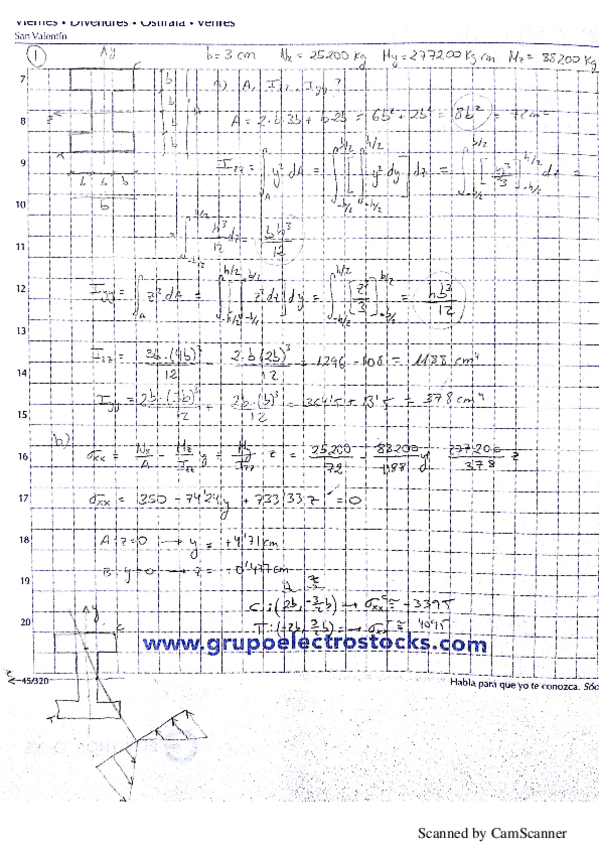 Viernes • Divendres • Ostirala • Venres
San Valentín
1 Ay b = 3 cm Nx = 25200 kg My = 277200 Kg cm Mz = 88200 Kg
7
a) A, Izz, Iyy?
8 A = 2·b·3b + b·2b = 6b² + 2b² = 8b² = 72 cm²
9 Izz = ∫A y² dA = ∫-b/2^b/2 [∫-h/2^h/2 y² dy] dz = ∫-b/2^b/2 [y³/3]-h/2^h/2 dz =
b b b
10
b
∫-b/2^b/2 h³/12 dz = bh³/12
11
12 Iyy = ∫A z² dA = ∫-h/2^h/2 [∫-b/2^b/2 z² dz] dy = ∫-h/2^h/2 [z³/3]-b/2^b/2 = hb³/12
13
14 Izz = 3b·(4b)³/12 - 2·b(2b)³/12 = 1296 - 108 = 1188 cm⁴
15 Iyy = 2b·(3b)³/12 + 2b·(b)³/12 = 364'5 + 13'5 = 378 cm⁴
b)
16 σxx = Nx/A - Mz/Izz y + My/Iyy z = 25200/72 - 88200/1188 y + 277200/378 z
17 σxx = 350 - 74'24y + 733'33z = 0
18 A: z=0 → y = +4'71 cm
B: y=0 → z = -0'477 cm
19
y z
C: (2b, -3/2b) → σxx = -3395
20 T: (-2b, 3/2b) → σxx = 4095
Ay
C
www.grupoelectrostocks.com
z
45/320 Habla para que yo te conozca. Sóc
T
Scanned by CamScanner